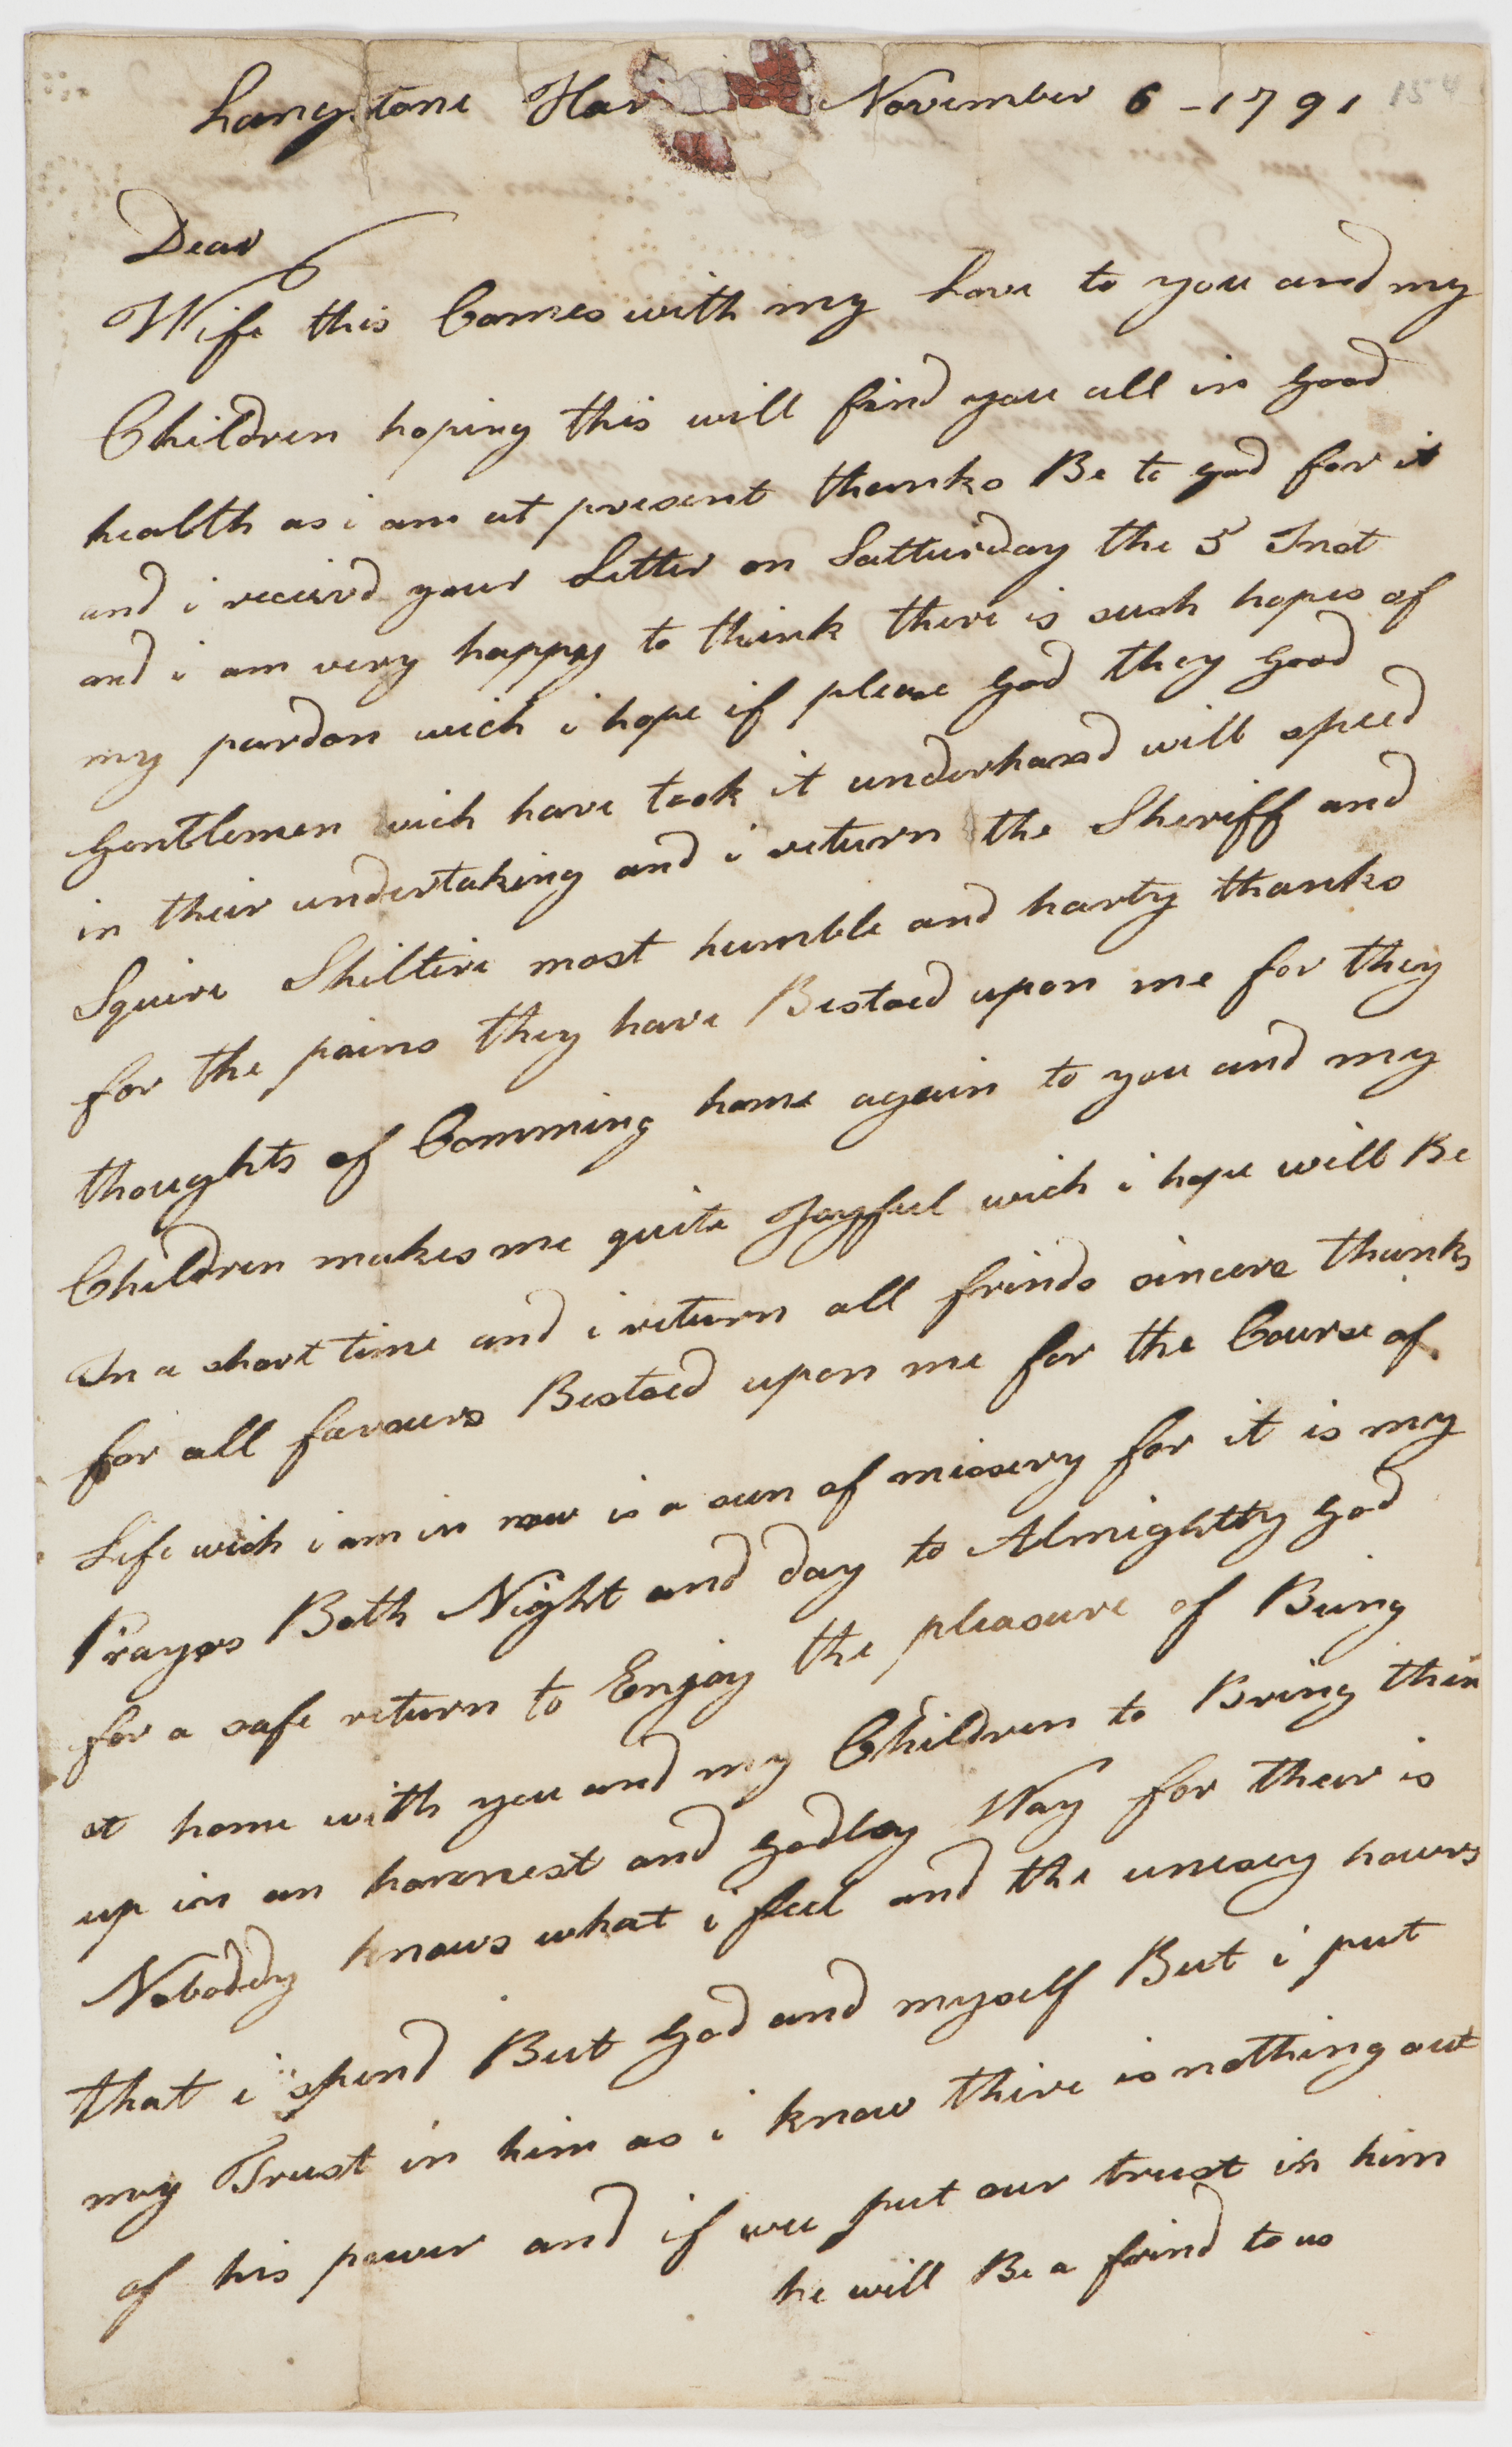 Langstone Har November 6 - 1791
Dear
Wife this Comes with my Love to you and my
Children hoping this will find you all in Good
health as i am at present thanks Be to god for it
and i receivd your Letter on Satturday the 5 Inst
and i am very happy to think there is sush hopes of
my pardon wich i hope if please God they Good
Gentlemen wich have took it underhand will speed
in their undertaking and i return the Sheriff and
Squire Shiltere most humble and harty thanks
for the pains they have Bestoed upon me for they
thoughts of Comming home again to you and my
Children makes me quite Joyfful wich i hope will Be
In a short time and i return all frinds sincere thanks
for all favours Bestoed upon me for the Course of
Life wich i am in now is a sun of missery for it is my
Prayrs Both Night and day to Almightty God
for a safe return to Enjoy the pleasure of Buing
at home with you and my Children to Bring thim
up in an honnest and Godley Way for thear is
Noboddy knows what i feel and the unesey howrs
that i spend But God and myself But i put
my Trust in him as i know thire is nothing out
of his power and if wee put our trust in him
he will Be a frind to us